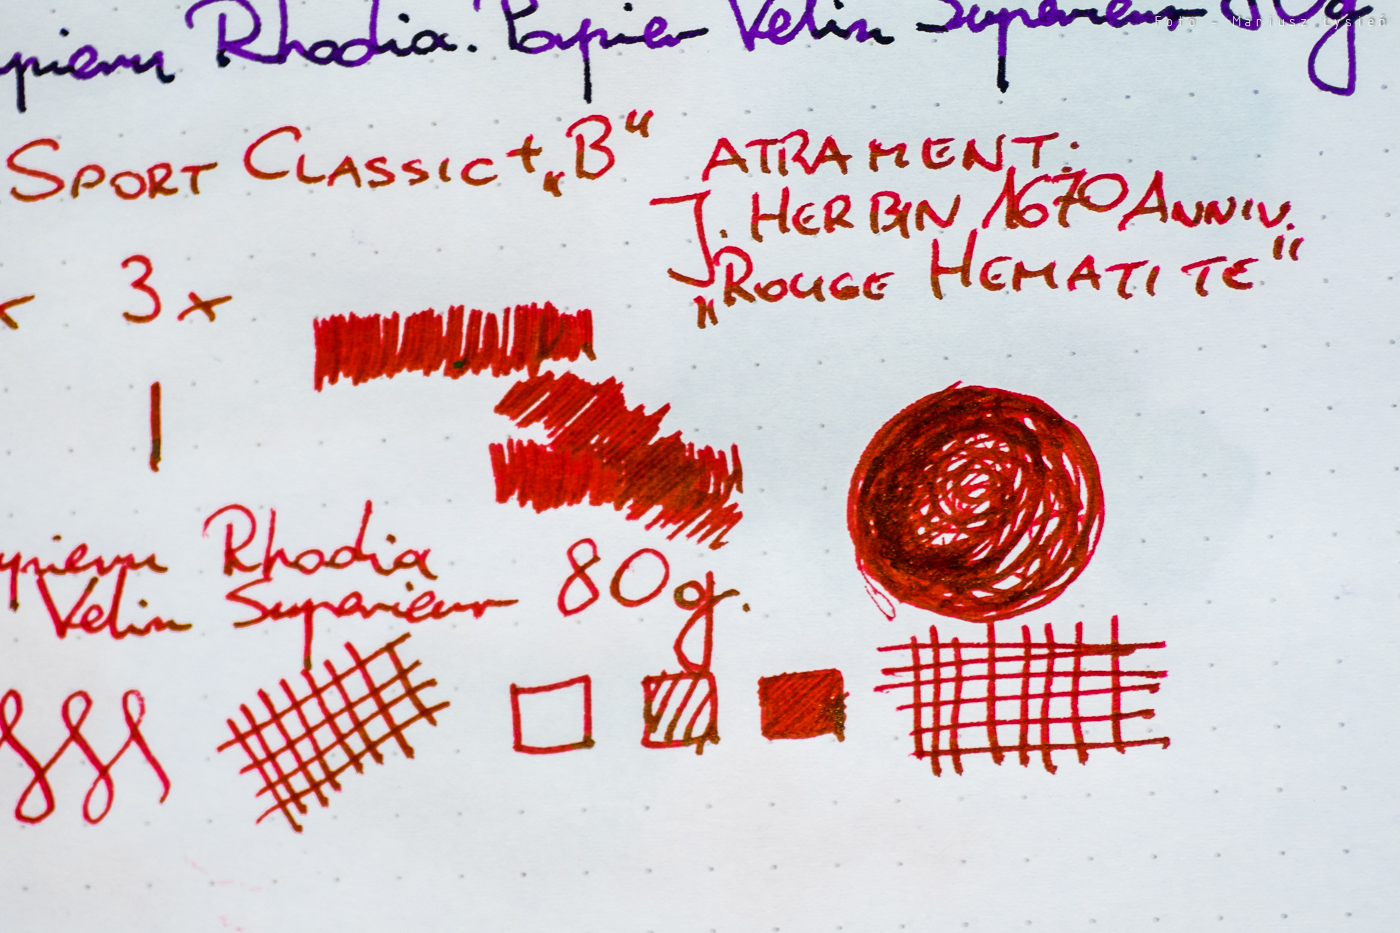 Rhodia. Papier Velin Superieur 80g
Foto - Mariusz Łysień
Sport Classic + „B“
Atrament:
J. Herbin 1670 Anniv.
„Rouge Hematite“
x 3 x
Rhodia
Velin Superieur 80g.